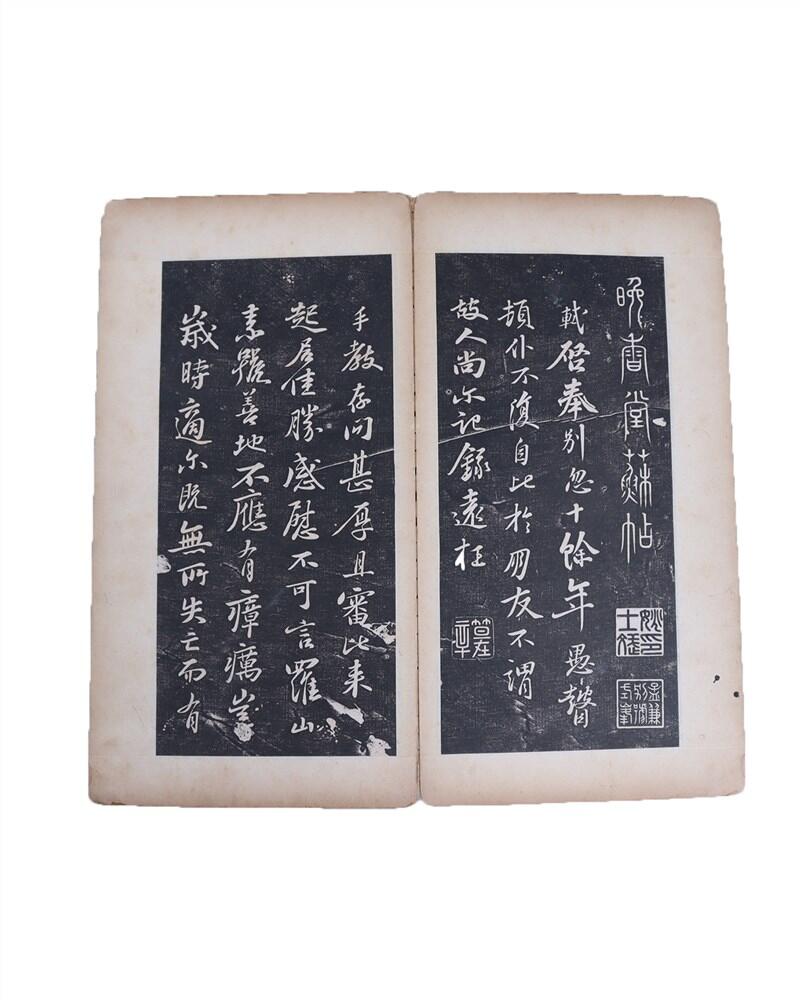 晚香堂蘇帖
軾啓奉別忽十餘年愚瞽
頓仆不復自比於朋友不謂
故人尚尒記錄遠枉
手教存問甚厚且審比來
起居佳勝感慰不可言羅山
素號善地不應有瘴癘豈
歲時適尒既無所失亡而有